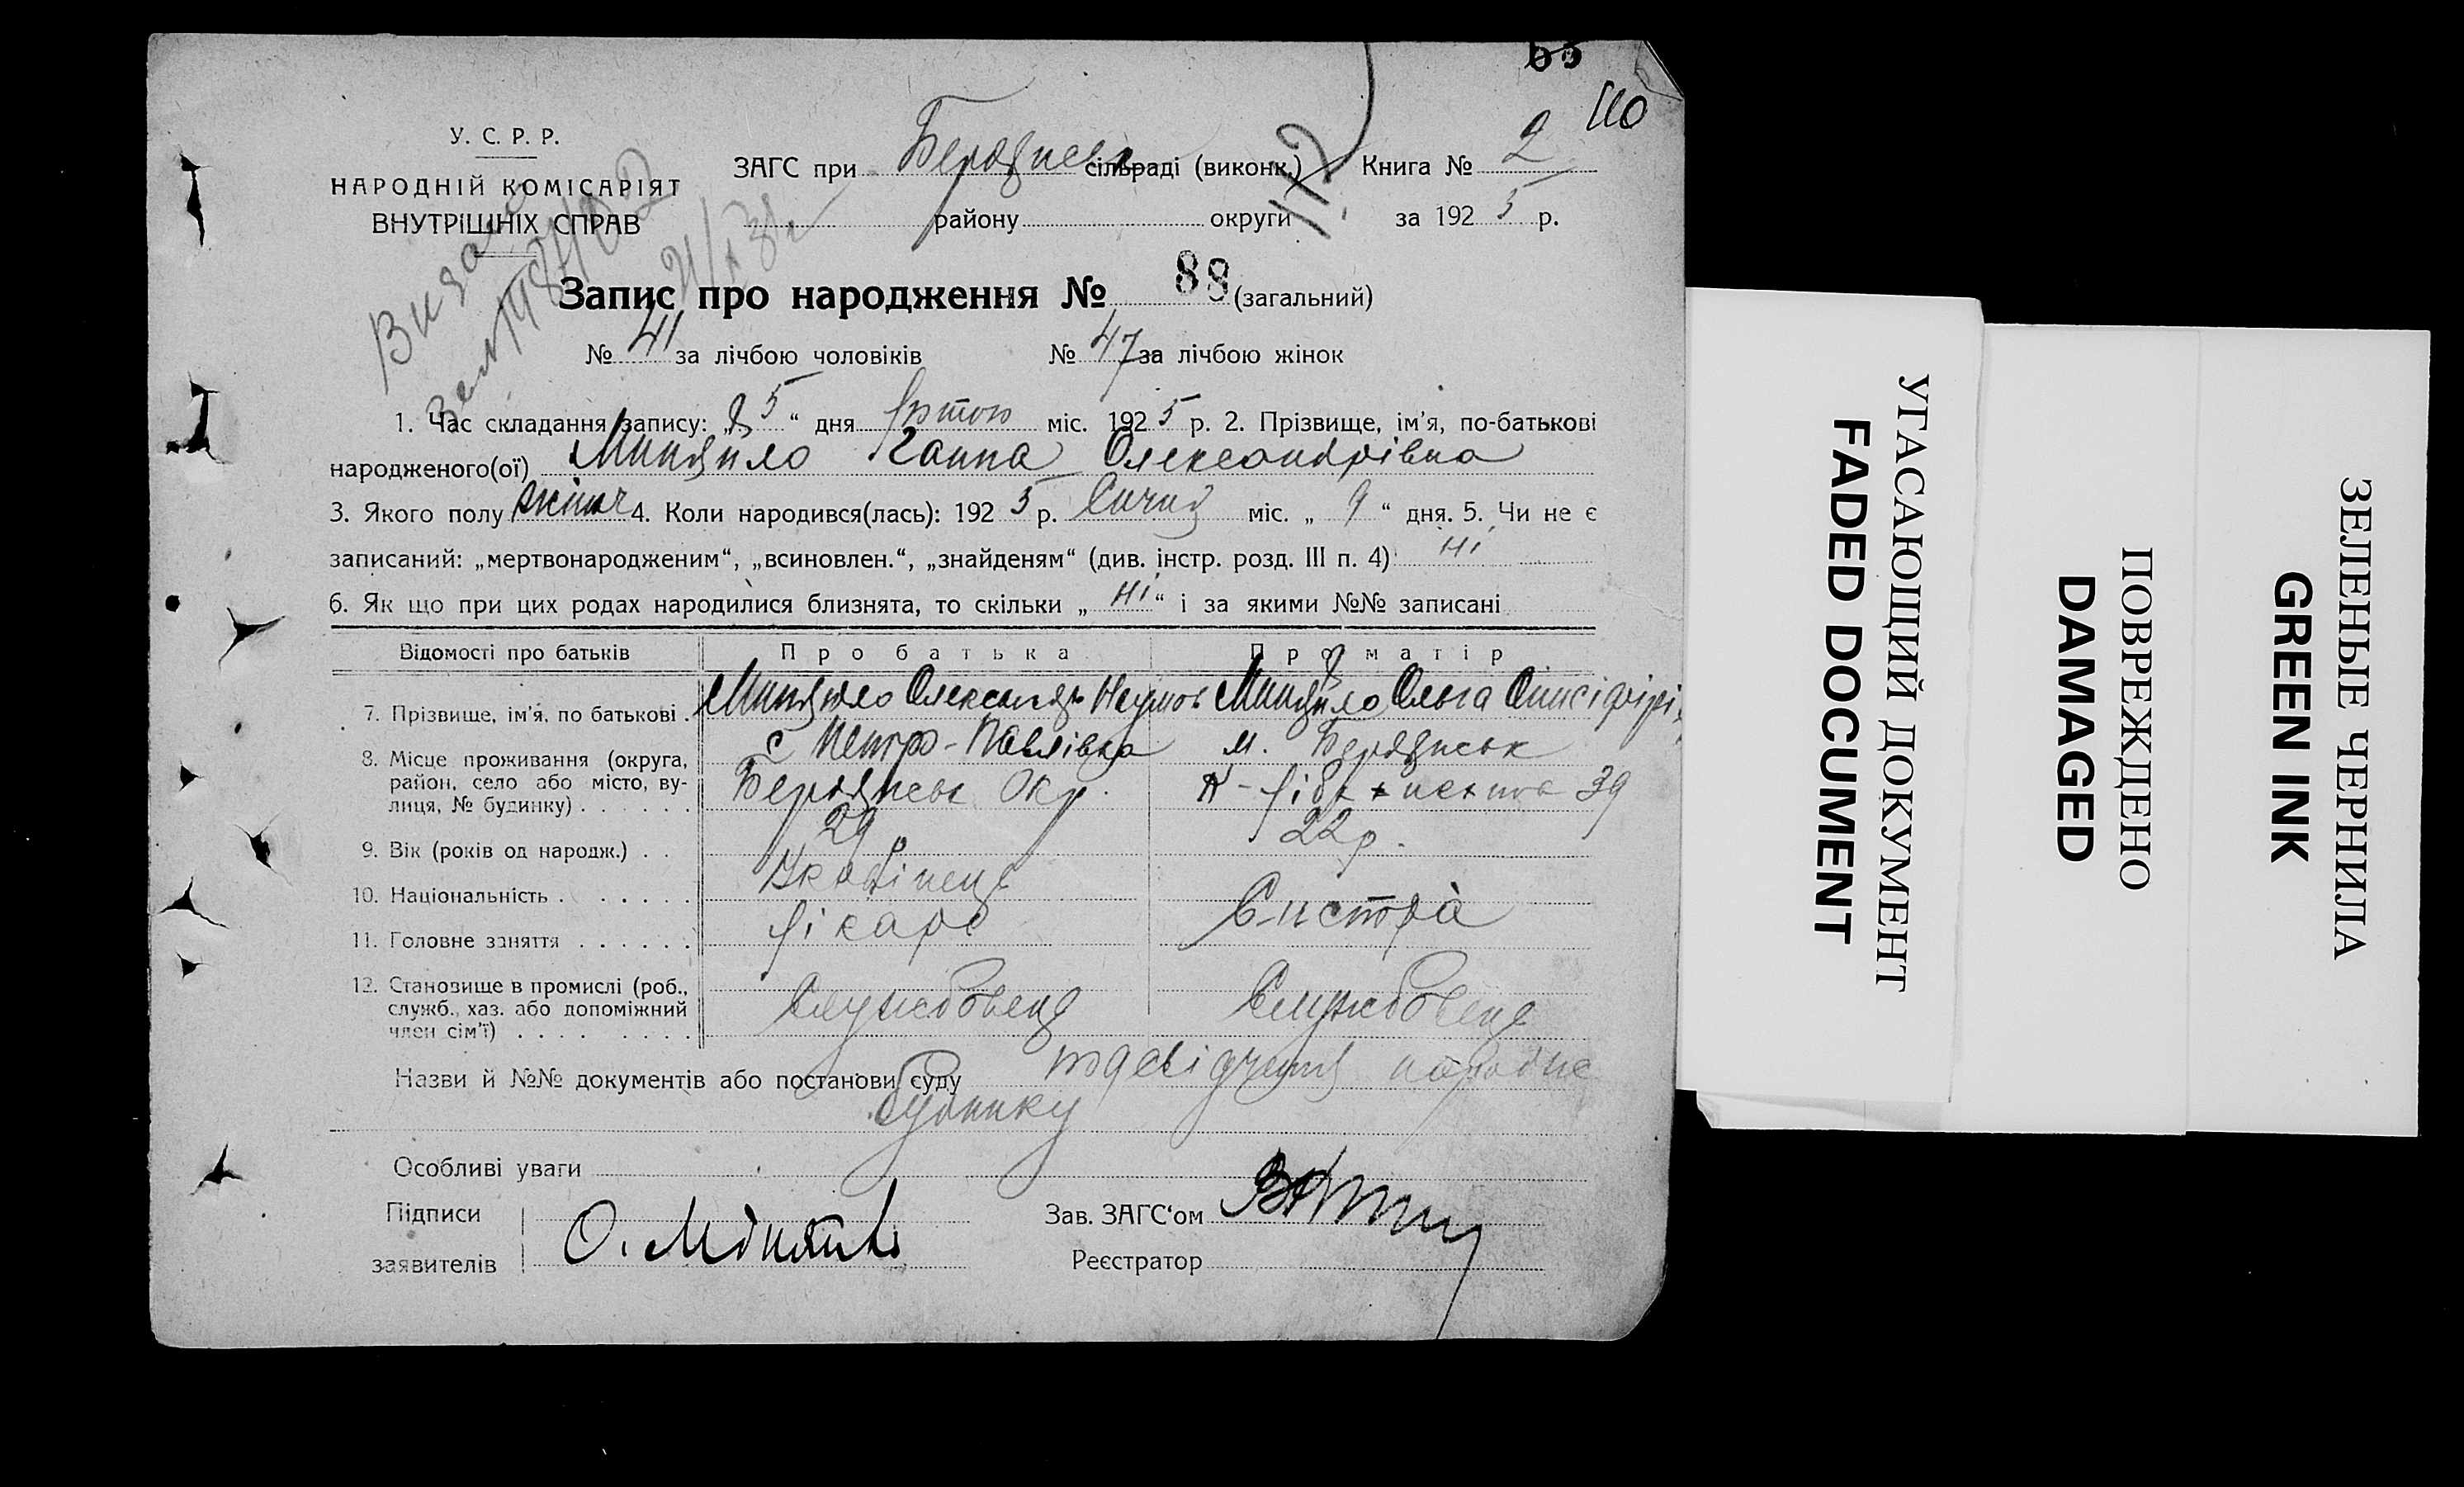 110
У. С. Р. Р.
НАРОДНІЙ КОМІСАРІЯТ
ВНУТРІШНІХ СПРАВ
ЗАГС при Бердянськ сільраді (виконк.) Книга № 2
району округи за 192 5 р.
112
Видано
Запис про народження № 88 (загальний)
№ 41 за лічбою чоловіків № 47 за лічбою жінок
1. Час складання запису: „25“ дня лютого міс. 192 5 р. 2. Прізвище, ім’я, по-батькові
народженого(ої) Ганна Олександрівна
3. Якого полу жіноч 4. Коли народився(лась): 192 5 р. Січня міс. „ 9 “ дня. 5. Чи не є
записаний: „мертвонародженим“, „всиновлен.“, „знайденям“ (див. інстр. розд. III п. 4) ні
6. Як що при цих родах народилися близнята, то скільки „ ні “ і за якими №№ записані
Відомості про батьків Про батька Про матір
7. Прізвище, ім’я, по батькові . Олександр Наумов Ольга
8. Місце проживання (округа, район, село або місто, вулиця, № будинку) . . . . . .
с Петро-Павлівка м. Бердянськ
Бердянськ Окр. 39
9. Вік (років од народж.) . . 29 р 22 р.
10. Національність . . . . . . Українець
11. Головне заняття . . . . . . лікарь
12. Становище в промислі (роб., служб., хаз. або допоміжний член сім’ї) . . . . . . . .
Службовець Службовець
Назви й №№ документів або постанови суду
будинку
Особливі уваги
Підписи
заявителів
Зав. ЗАГС‘ом
Реєстратор
УГАСАЮЩИЙ ДОКУМЕНТ
FADED DOCUMENT
ПОВРЕЖДЕНО
DAMAGED
ЗЕЛЕНЫЕ ЧЕРНИЛА
GREEN INK